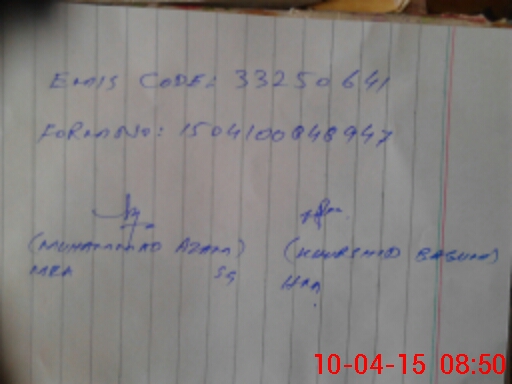 EMIS CODE: 33250641
FORM NO: 1504100848947
(MUHAMMAD AZAM) (KHURSHID BAGUM)
MEA SG HM
10-04-15 08:50